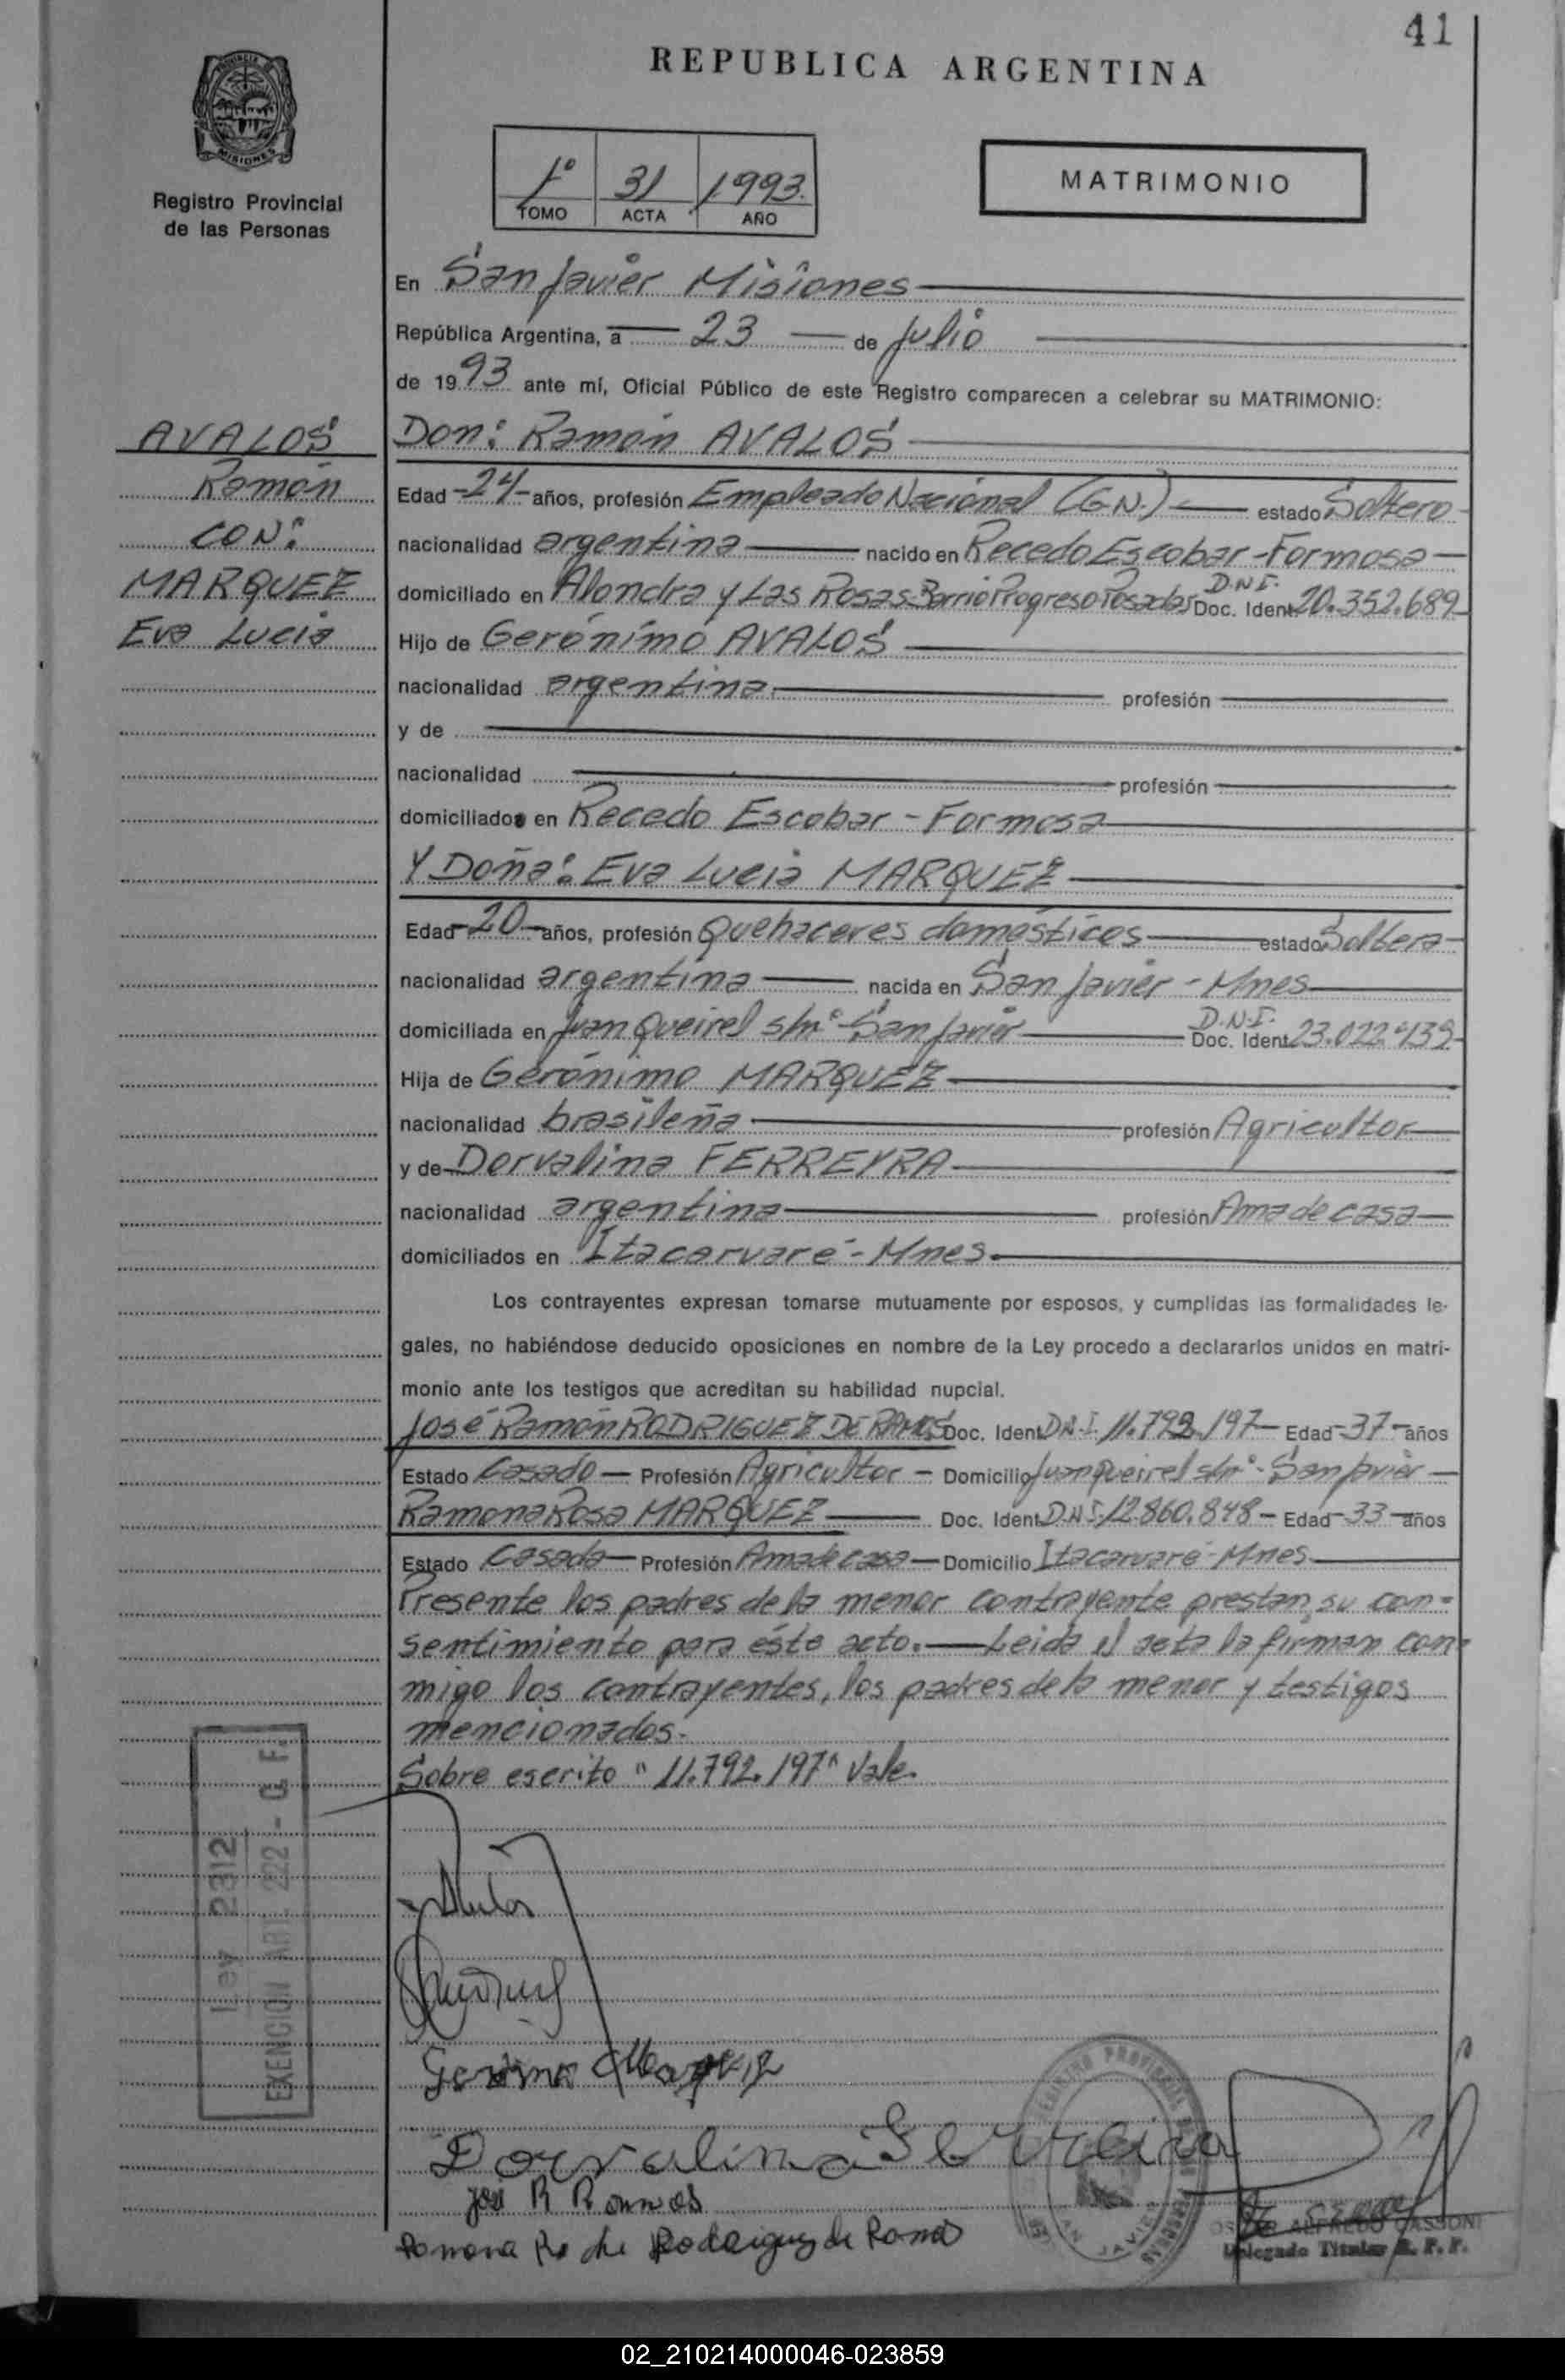 41
REPUBLICA ARGENTINA
MISIONES
Registro Provincial
de las Personas
1º 31 1993.
TOMO ACTA AÑO
MATRIMONIO
En San Javier Misiones
República Argentina, a 23 de Julio
de 1993 ante mí, Oficial Público de este Registro comparecen a celebrar su MATRIMONIO:
AVALOS
Ramón
CON:
MARQUEZ
Eva Lucia
Don: Ramón AVALOS
Edad -24- años, profesión Empleado Nacional (G.N.) estado Soltero
nacionalidad argentina nacido en Recedo Escobar - Formosa
domiciliado en Alondra y Las Rosas-Barrio Progreso Posadas D.N.I. Doc. Ident. 20.352.689
Hijo de Gerónimo AVALOS
nacionalidad argentina. profesión
y de
nacionalidad profesión
domiciliados en Recedo Escobar - Formosa
Y Doña: Eva Lucia MARQUEZ
Edad -20- años, profesión Quehaceres domésticos estado Soltera
nacionalidad argentina nacida en San Javier - Mnes
domiciliada en Juan Queirel s/nº - San Javier D.N.I. Doc. Ident. 23.022.439
Hija de Gerónimo MARQUEZ
nacionalidad brasileña profesión Agricultor
y de Dorvalina FERREYRA
nacionalidad argentina profesión Ama de casa
domiciliados en Itacarvaré - Mnes.
Los contrayentes expresan tomarse mutuamente por esposos, y cumplidas las formalidades le-
gales, no habiéndose deducido oposiciones en nombre de la Ley procedo a declararlos unidos en matri-
monio ante los testigos que acreditan su habilidad nupcial.
José Ramón RODRIGUEZ DE RAMOS Doc. Ident. D.N.I. 11.792.197 - Edad -37- años
Estado Casado - Profesión Agricultor - Domicilio Juan Queirel s/nº - San Javier -
Ramona Rosa MARQUEZ Doc. Ident. D.N.I. 12.860.848 - Edad -33- años
Estado Casada - Profesión Ama de casa - Domicilio Itacarvaré - Mnes
Presente los padres de la menor contrayente prestan su con=
sentimiento para éste acto. - Leida el acta la firman con=
migo los contrayentes, los padres de la menor y testigos
mencionados.
Sobre escrito "11.792.197" Vale.
Ley 2312
EXENCION ART. 222 - C. F.
Dorvalina Ferreira
José R Ramos
Ramona Ro de Rodriguez de Ramos
REGISTRO PROVINCIAL DE LAS PERSONAS
SAN JAVIER
OSCAR ALFREDO CASSONI
Delegado Titular R. P. P.
02_210214000046-023859